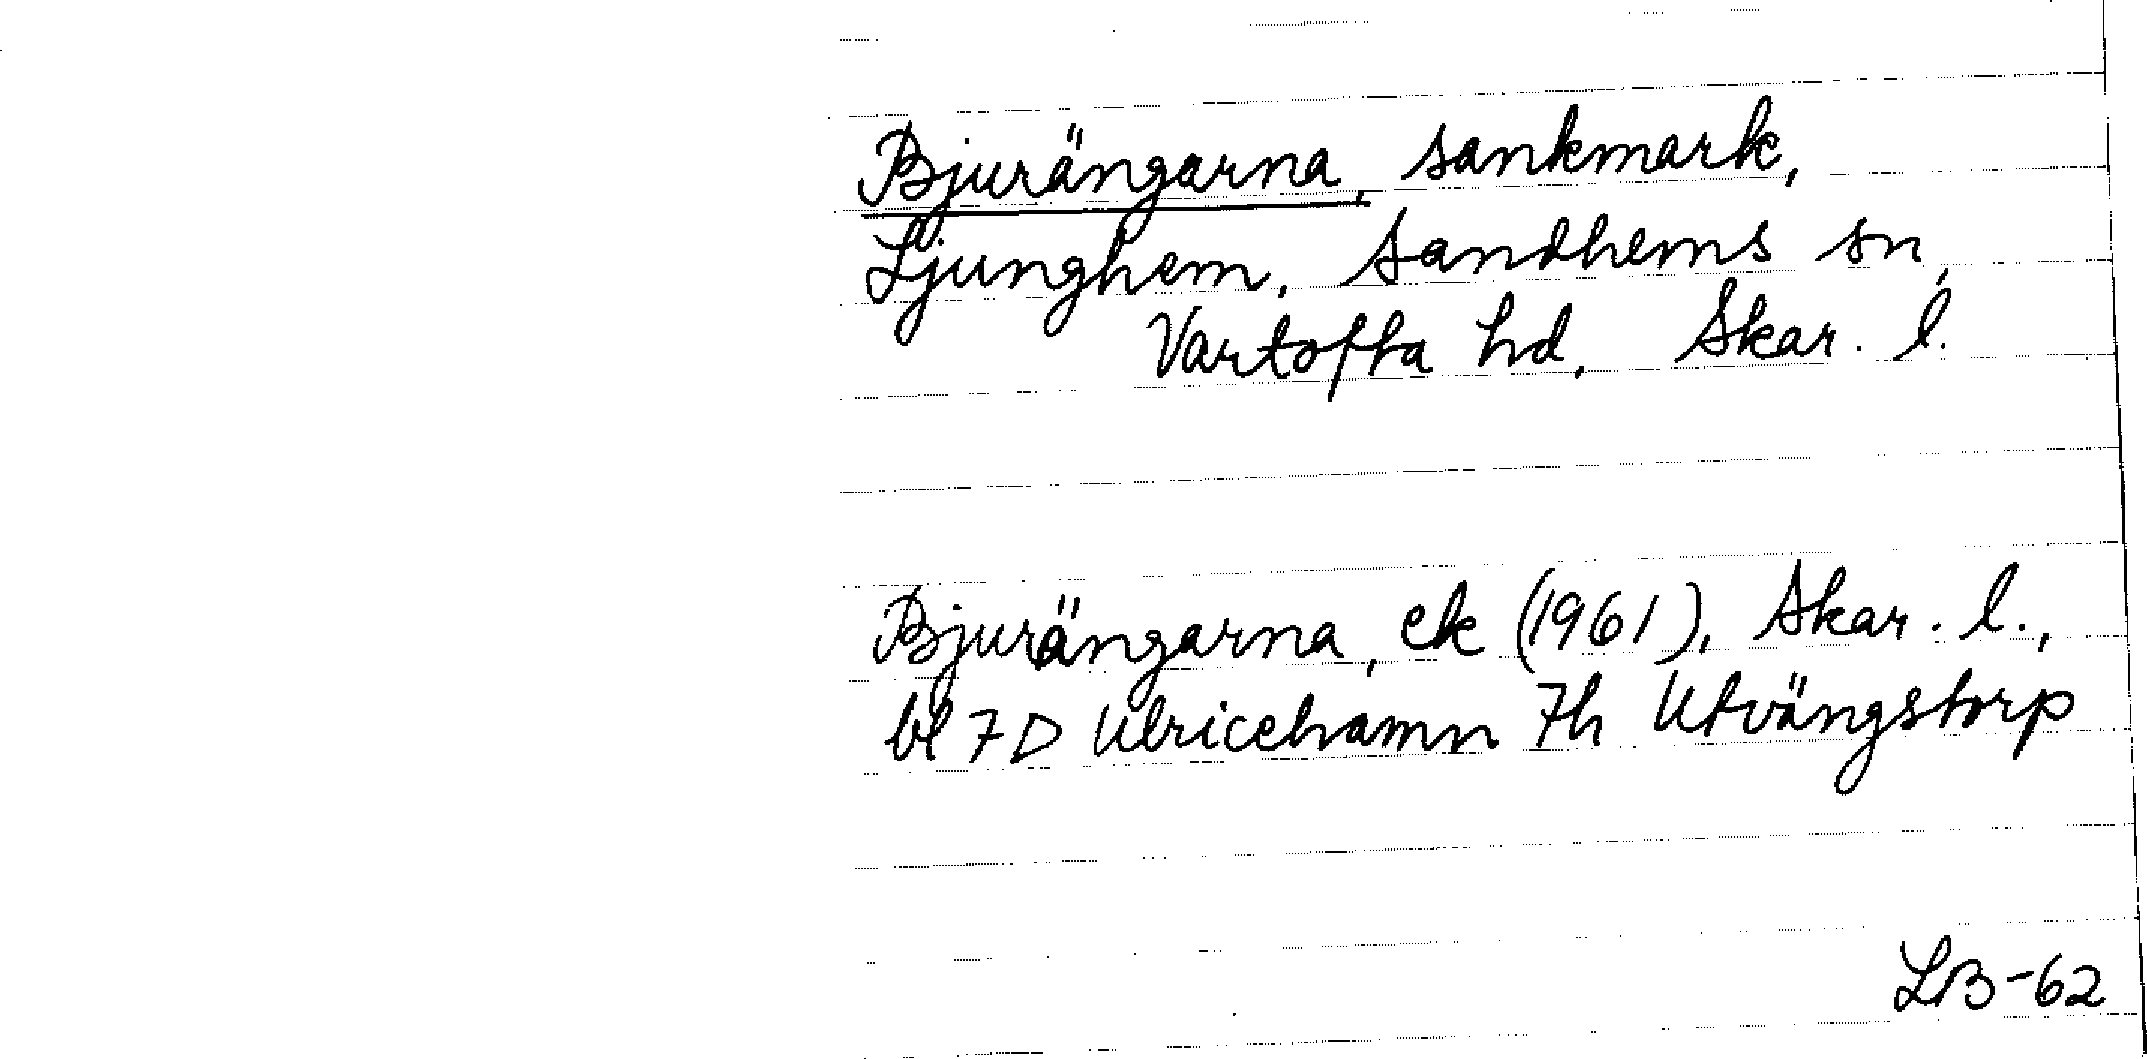 Bjurängarna, sankmark,
Ljunghem, Sandhems sn,
Vartofta hd, Skar. l.
Bjurängarna, ek (1961), Skar. l.,
bl 7D Ulricehamn 7h Utvängstorp
LB-62